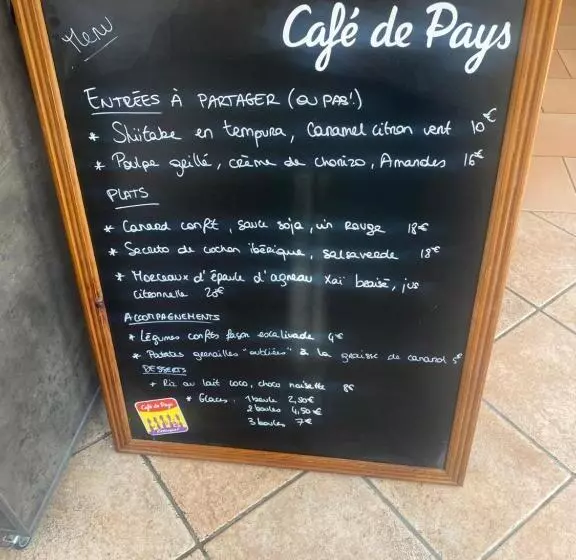 Menu
Café de Pays
ENTRÉES À PARTAGER (OU PAS!)
* Shiitake en tempura, Caramel citron vert 10€
* Poulpe grillé, crème de chorizo, Amandes 16€
PLATS
* Canard confit, sauce soja, vin Rouge 18€
* Secreto de cochon ibérique, salsa verde 18€
* Morceaux d'épaule d'agneau Xaï braisé, jus
citronnelle 20€
ACCOMPAGNEMENTS
* Légumes confits façon escalivade 4€
* Patates grenailles "oubliées" à la graisse de canard 5€
DESSERTS
* Riz au lait coco, choco noisette 8€
* Glaces, 1 boule 2,50€
2 boules 4,50€
3 boules 7€
Café de Pays